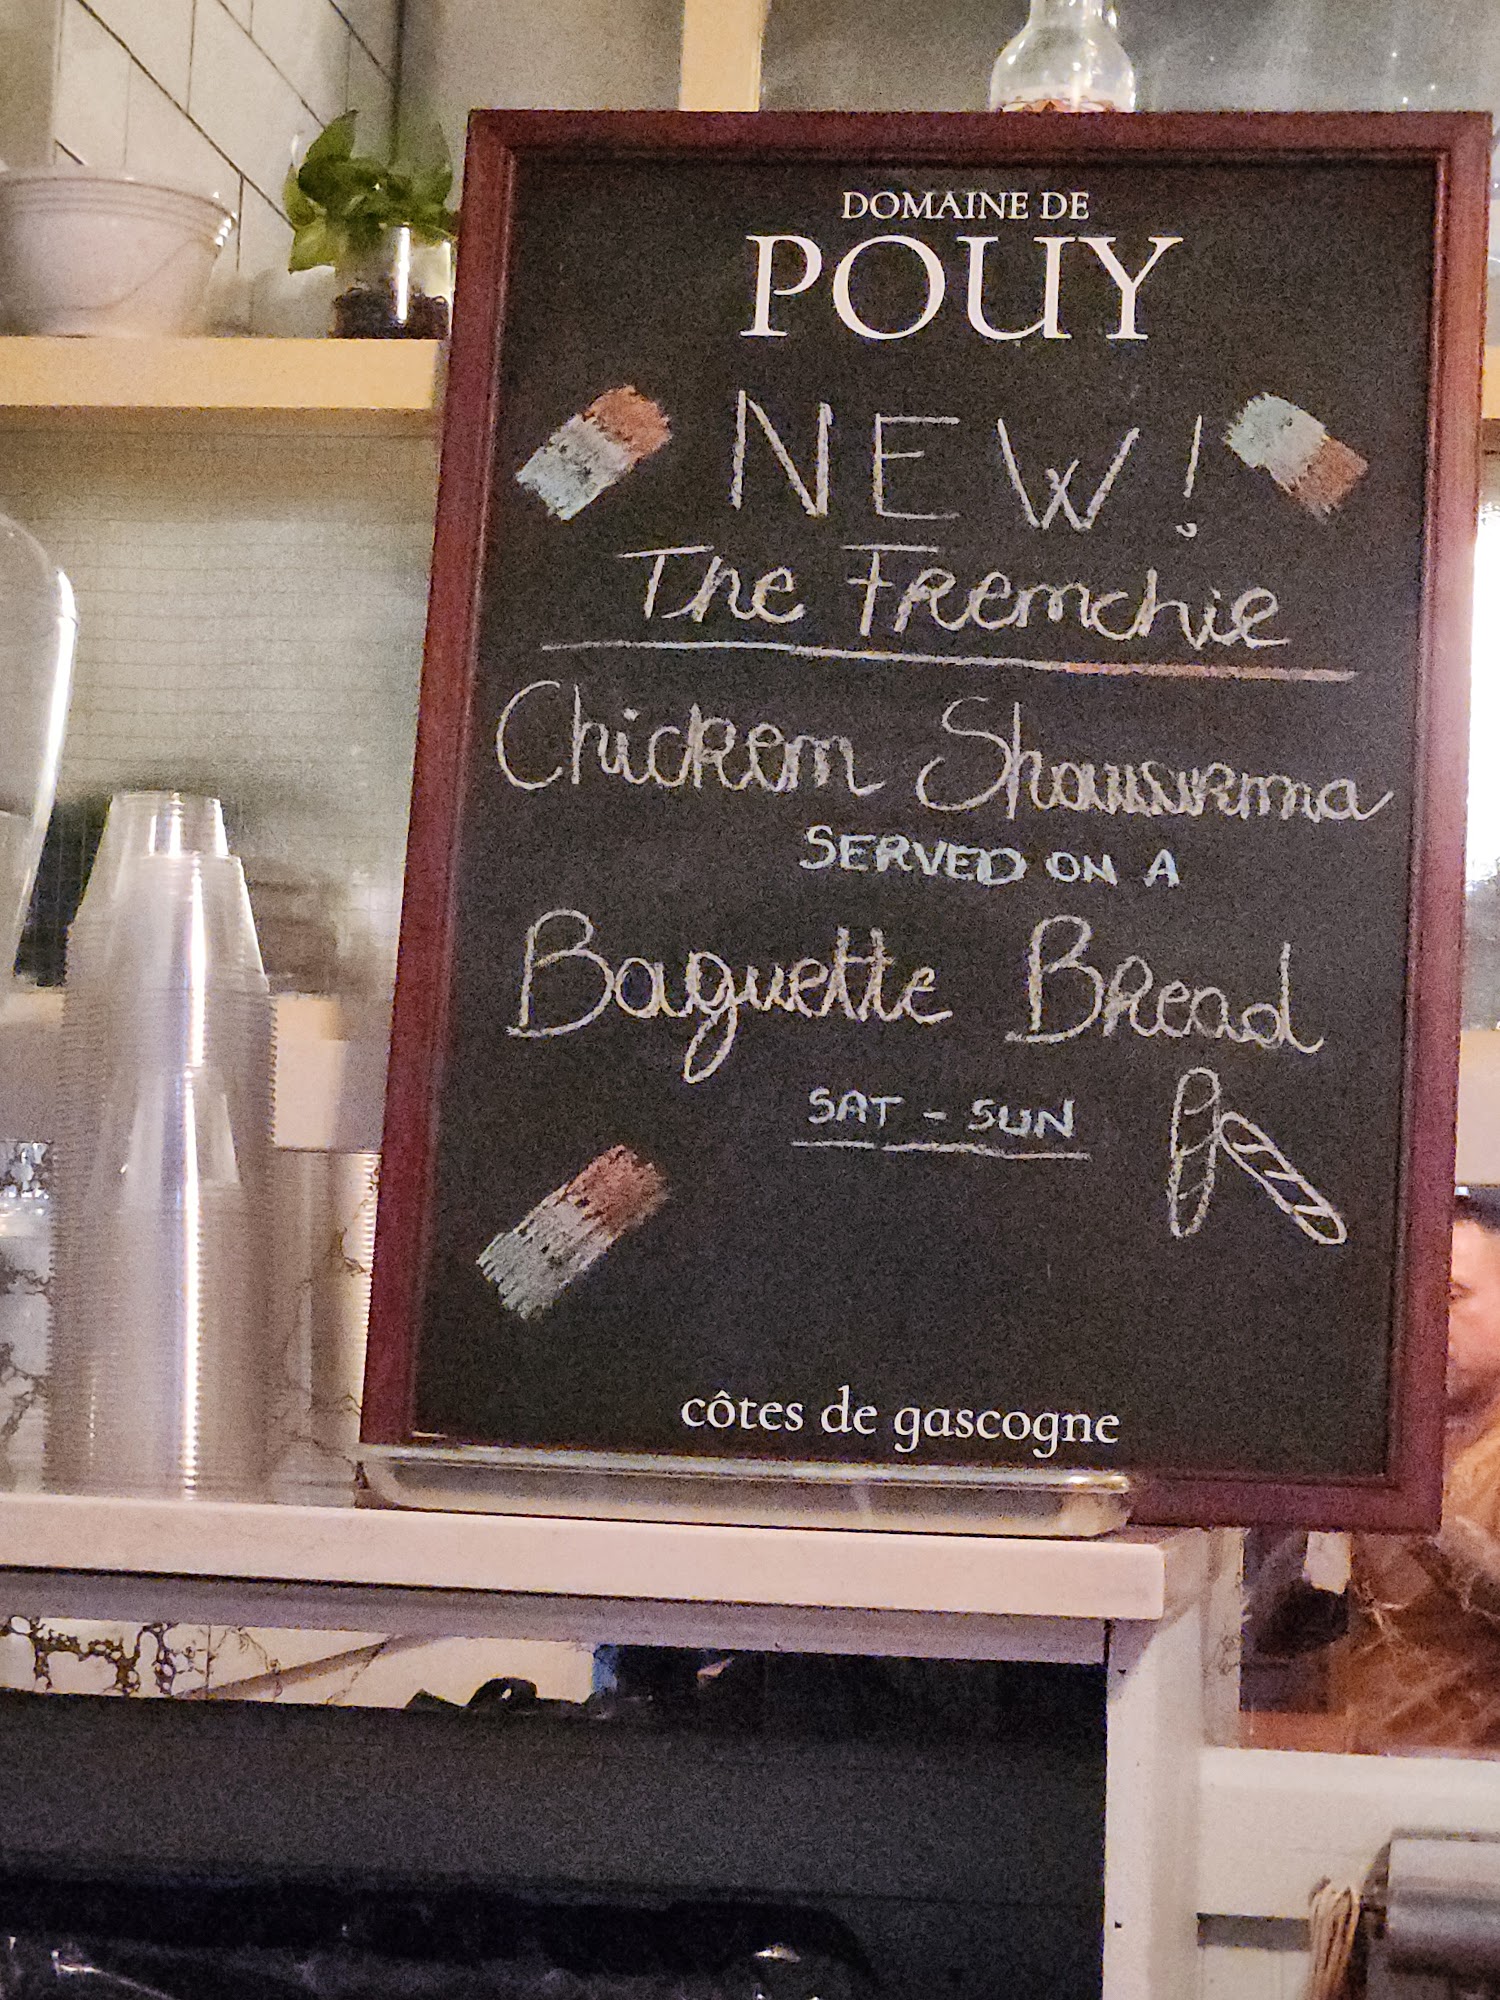 DOMAINE DE
POUY
NEW!
The Frenchie
Chicken Shawarma
SERVED ON A
Baguette Bread
SAT - SUN
côtes de gascogne